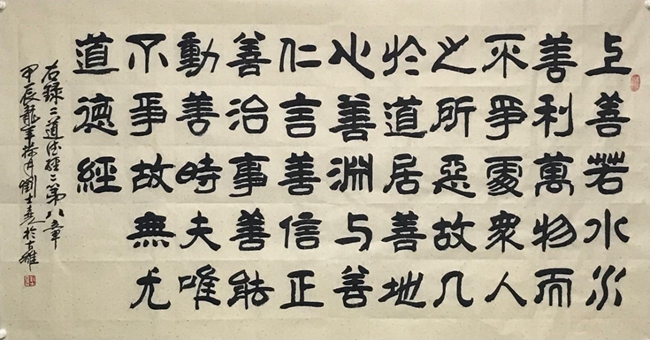 上善若水水
善利萬物而
不爭處衆人
之所惡故几
於道居善地
心善淵与善
仁言善信正
善治事善能
動善時夫唯
不爭故無尤
道德經
右録道德经第八章
甲辰龍年月劉士於古雍